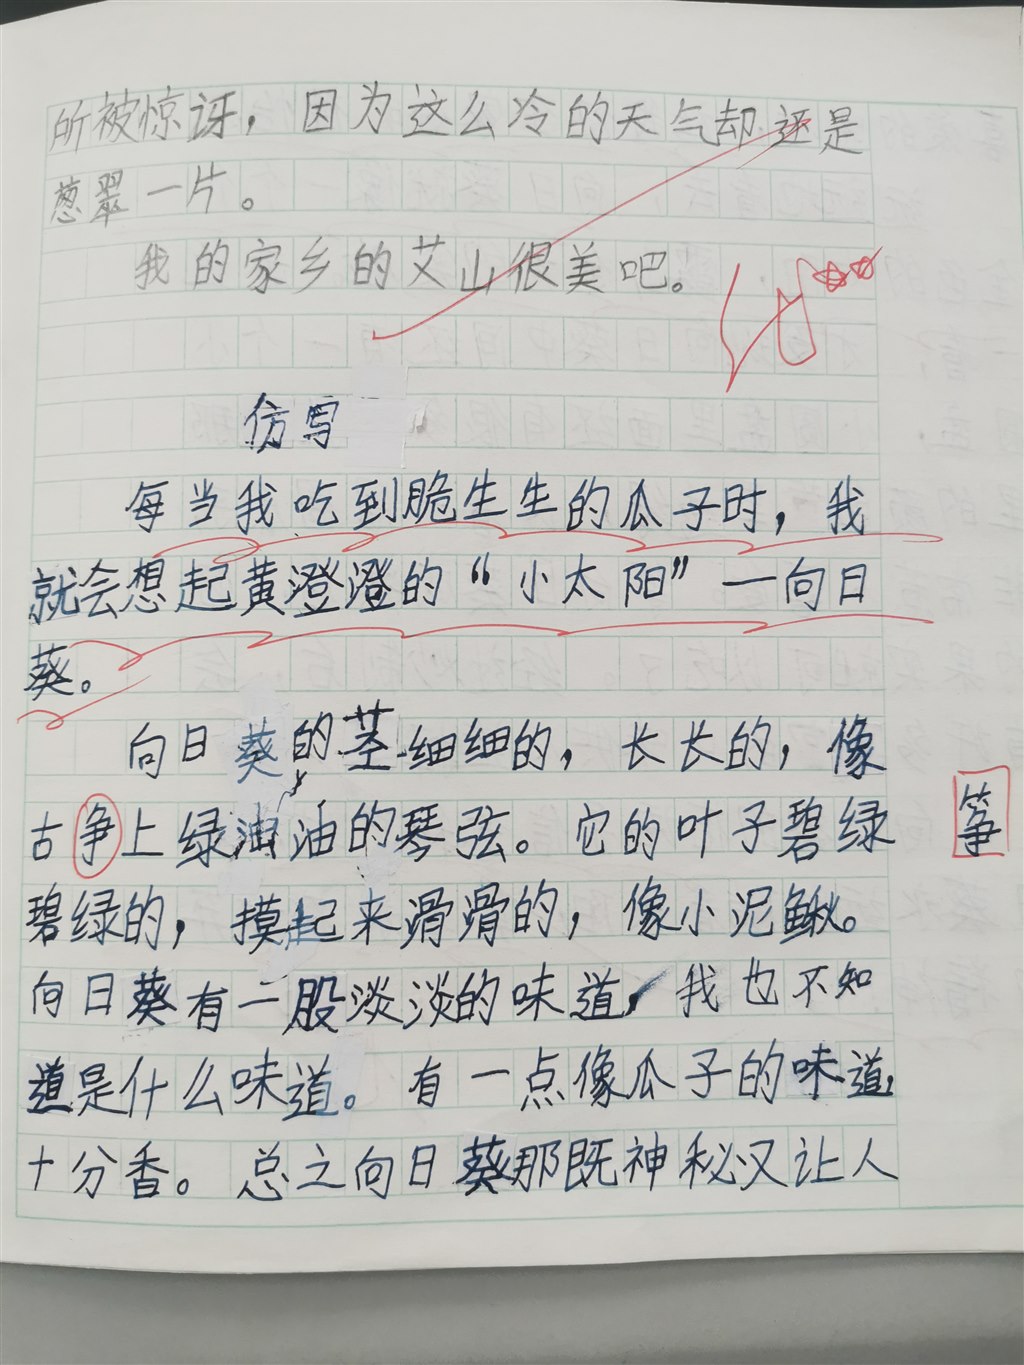 所被惊讶，因为这么冷的天气却还是
葱翠一片。
我的家乡的艾山很美吧。
仿写
每当我吃到脆生生的瓜子时，我
就会想起黄澄澄的“小太阳”—向日
葵。
向日葵的茎细细的，长长的，像
古争上绿油油的琴弦。它的叶子碧绿
筝
碧绿的，摸起来滑滑的，像小泥鳅。
向日葵有一股淡淡的味道，我也不知
道是什么味道。有一点像瓜子的味道，
十分香。总之向日葵那既神秘又让人